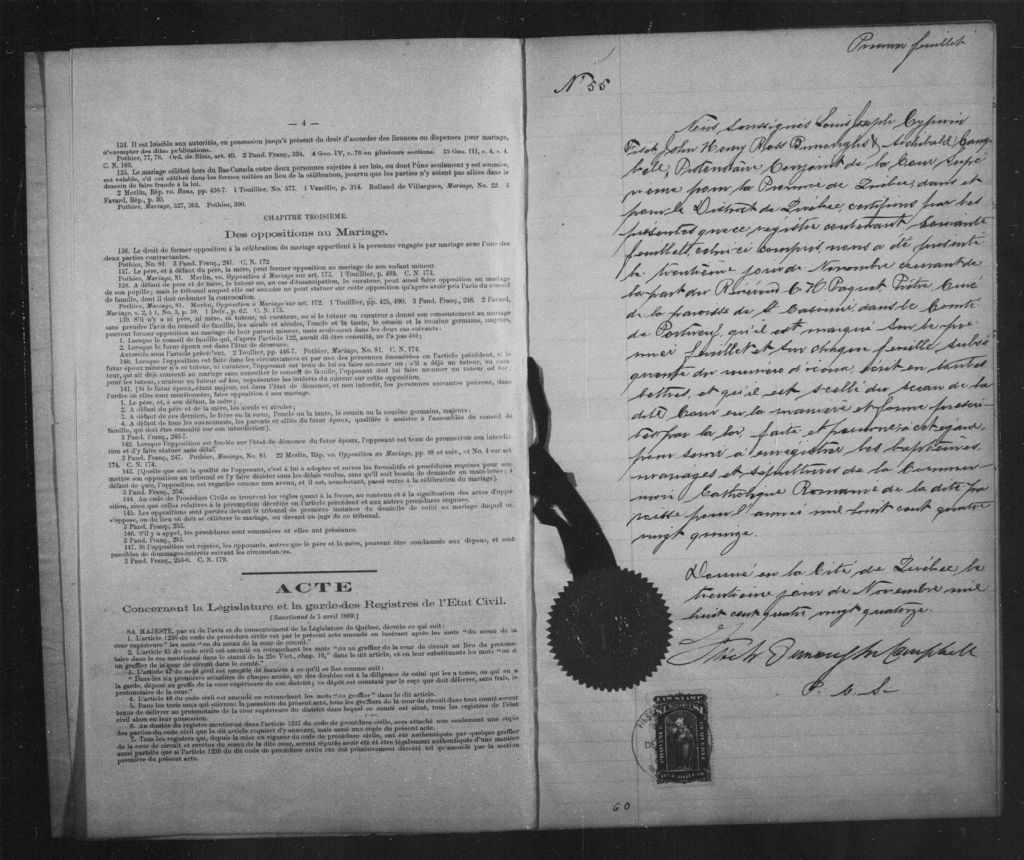 — 4 —
134. Il est loisible aux autorités, en possession jusqu'à présent du droit d'accorder des licences ou dispenses pour mariage,
d'exempter des dites publications.
Pothier, 77, 78. Ord. de Blois, art. 40. 2 Pand. Franç., 324. 4 Geo. IV, c. 76 en plusieurs sections. 35 Geo. III, c. 4, s. 4.
C. N. 169.
135. Le mariage célébré hors du Bas-Canada entre deux personnes sujettes à ses lois, ou dont l'une seulement y est soumise,
est valable, s'il est célébré dans les formes usitées au lieu de la célébration, pourvu que les parties n'y soient pas allées dans le
dessein de faire fraude à la loi.
2 Merlin, Rép. vo. Bans, pp. 436-7. 1 Toullier, No. 577. 1 Vazeille, p. 314. Rolland de Villargues, Mariage, No. 22. 3
Favard, Rép., p. 30.
Pothier, Mariage, 327, 363. Pothier, 390.
CHAPITRE TROISIEME.
Des oppositions au Mariage.
136. Le droit de former opposition à la célébration du mariage appartient à la personne engagée par mariage avec l'une des
deux parties contractantes.
Pothier, No. 81. 3 Pand. Franç., 241. C. N. 172.
137. Le père, et à défaut du père, la mère, peut former opposition au mariage de son enfant mineur.
Pothier, Mariage, 81. Merlin, vo. Opposition à Mariage sur art. 173. 1 Toullier, p. 489. C. N. 173.
138. A défaut de père et de mère, le tuteur ou, au cas d'émancipation, le curateur, peut aussi faire opposition au mariage
de son pupille; mais le tribunal auquel elle est soumise ne peut statuer sur cette opposition qu'après avoir pris l'avis du conseil
de famille, dont il doit ordonner la convocation.
Pothier, Mariage, 81. Merlin, Opposition à Mariage sur art. 172. 1 Toullier, pp. 425, 490. 3 Pand. Franç., 248. 2 Favard,
Mariage, s. 2, § 1, No. 3, p. 59. C. N. 175.
139. S'il n'y a ni père, ni mère, ni tuteur, ni curateur, ou si le tuteur ou curateur a donné son consentement au mariage
sans prendre l'avis du conseil de famille, les aïeuls et aïeules, l'oncle et la tante, le cousin et la cousine germains, majeurs,
peuvent former opposition au mariage de leur parent mineur, mais seulement dans les deux cas suivants:
1. Lorsque le conseil de famille qui, d'après l'article 122, aurait dû être consulté, ne l'a pas été;
2. Lorsque le futur époux est dans l'état de démence.
Autorités sous l'article précédent. 2 Toullier, pp. 446-7. Pothier, Mariage, No. 81. C. N. 174.
140. Lorsque l'opposition est faite dans les circonstances et par une des personnes énumérées en l'article précédent, si le
futur époux mineur n'a ni tuteur, ni curateur, l'opposant est tenu de lui en faire nommer un; s'il a déjà un tuteur, ou cura-
teur, qui ait déjà consenti au mariage sans consulter le conseil de famille, l'opposant doit lui faire nommer un tuteur ad hoc,
pour les tuteur, curateur ou tuteur ad hoc, représenter les intérêts du mineur sur cette opposition.
141. [Si le futur époux, étant majeur, est dans l'état de démence, et non interdit, les personnes suivantes peuvent, dans
l'ordre où elles sont mentionnées, faire opposition à son mariage.
1. Le père, et, à son défaut, la mère;
2. A défaut du père et de la mère, les aïeuls et aïeules;
3. A défaut de ces derniers, le frère ou la sœur, l'oncle ou la tante, le cousin ou la cousine germains, majeurs;
4. A défaut de tous les susnommés, les parents et alliés du futur époux, qualifiés à assister à l'assemblée du conseil de
famille, qui doit être consulté sur son interdiction].
3 Pand. Franç., 246-7.
142. Lorsque l'opposition est fondée sur l'état de démence du futur époux, l'opposant est tenu de promouvoir son interdic-
tion et d'y faire statuer sans délai.
3 Pand. Franç., 247. Pothier, Mariage, No. 81. 22 Merlin, Rép. vo. Opposition au Mariage, pp. 88 et suiv., et No. 4 sur art
174. C. N. 174.
143. [Quelle que soit la qualité de l'opposant, c'est à lui à adopter et suivre les formalités et procédures requises pour sou-
mettre son opposition au tribunal et l'y faire décider sous les délais voulus, sans qu'il soit besoin de demande en main-levée; à
défaut de quoi, l'opposition est regardée comme non avenu, et il est, nonobstant, passé outre à la célébration du mariage].
3 Pand. Franç., 254.
144. Au code de Procédure Civile se trouvent les règles quant à la forme, au contenu et à la signification des actes d'oppo-
sition, ainsi que celles relatives à la péremption décrétée en l'article précédent et aux autres procédures requises.
145. Les oppositions sont portées devant le tribunal de première instance du domicile de celui au mariage duquel on
s'oppose, ou du lieu où doit se célébrer le mariage, ou devant un juge de ce tribunal.
3 Pand. Franç., 253.
146. S'il y a appel, les procédures sont sommaires et elles ont préséance.
3 Pand. Franç., 253.
147. Si l'opposition est rejetée, les opposants, autres que le père et la mère, peuvent être condamnés aux dépens, et sont
passibles de dommages-intérêts suivant les circonstances.
3 Pand. Franç., 255-6. C. N. 179.
ACTE
Concernant la Législature et la garde-des Registres de l'Etat Civil.
[Sanctionné le 5 avril 1869.]
SA MAJESTE, par et de l'avis et du consentement de la Législature de Québec, décrète ce qui suit:
1. L'article 1236 du code de procédure civile est par le présent acte amendé en insérant après les mots "du sceau de la
cour supérieure" les mots "ou du sceau de la cour de circuit."
2. L'article 45 du code civil est amendé en retranchant les mots "ou au greffier de la cour de circuit au lieu du protono-
taire dans le cas mentionné dans le statut de la 25e Vict., chap. 16," dans le dit article, et en leur substituants les mots "ou à
un greffier de la cour de circuit dans le comté."
3. L'article 47 du code civil est amendé de manière à ce qu'il se lise comme suit:
"Dans les six premières semaines de chaque année, un des doubles est à la diligence de celui qui les a tenus, ou qui en a
la garde, déposé au greffe de la cour supérieure de son district; ce dépôt est constaté par le reçu que doit délivrer, sans frais, le
protonotaire de la cour."
4. L'article 48 du code civil est amendé en retranchant les mots "ou greffier" dans le dit article.
5. Dans les trois mois qui suivront la passation du présent acte, tous les greffiers de la cour de circuit dans tout comté seront
tenus de délivrer au protonotaire de la cour supérieure du district dans lequel se comté est situé, tous les registres de l'état
civil alors en leur possession.
6. Au double du registre mentionné dans l'article 1237 du code de procédure civile, sera attaché non seulement une copie
des parties du code civil que le dit article requiert d'y annexer, mais aussi une copie du présent acte.
7. Tous les registres qui, depuis la mise en vigueur du code de procédure civile, ont été authentiqués par quelque greffier
de la cour de circuit et revêtus du sceau de la dite cour, seront réputés avoir été et être légalement authentiqués d'une manière
aussi parfaite que si l'article 1236 du dit code de procédure civile eut été primitivement décrété tel qu'amendé par la section
première du présent acte.
Premier feuillet
No 55
Nous, Soussignés Louis Joseph Cyprien
Fiset, John Henry Ross Burroughs & Archibald Camp
bell, Protonotaire Conjoint de la Cour Supé
rieure pour la Province de Québec, dans et
pour le District de Québec, certifions par les
présentes que ce registre contenant Soixante
feuillets, celui-ci compris, nous a été présenté
le trentième jour de Novembre courant de
la part du Révérend G. H. Paquet Prêtre, Curé
de la paroisse de St Casimir dans le Comté
de Portneuf, qu'il est marqué sur le pre
mier feuillet et sur chaque feuille subsé
quente du numéro d'icelui, écrit en toutes
lettres, et qu'il est scellé du sceau de la
dite Cour en la manière et forme prescri
tes par la loi, faite et pourvue à cet égard,
pour servir à enregistrer les baptêmes,
mariages et sépultures de la Commu
nion Catholique Romaine de la dite pa
roisse pour l'année mil huit cent quatre
vingt quinze.
Donné en la Cité de Québec le
trentième jour de Novembre mil
huit cent quatre vingt quatorze.
Fiset Burroughs Campbell
P. C. S.
LAW STAMP
PROVINCE
ONE DOLLAR
60